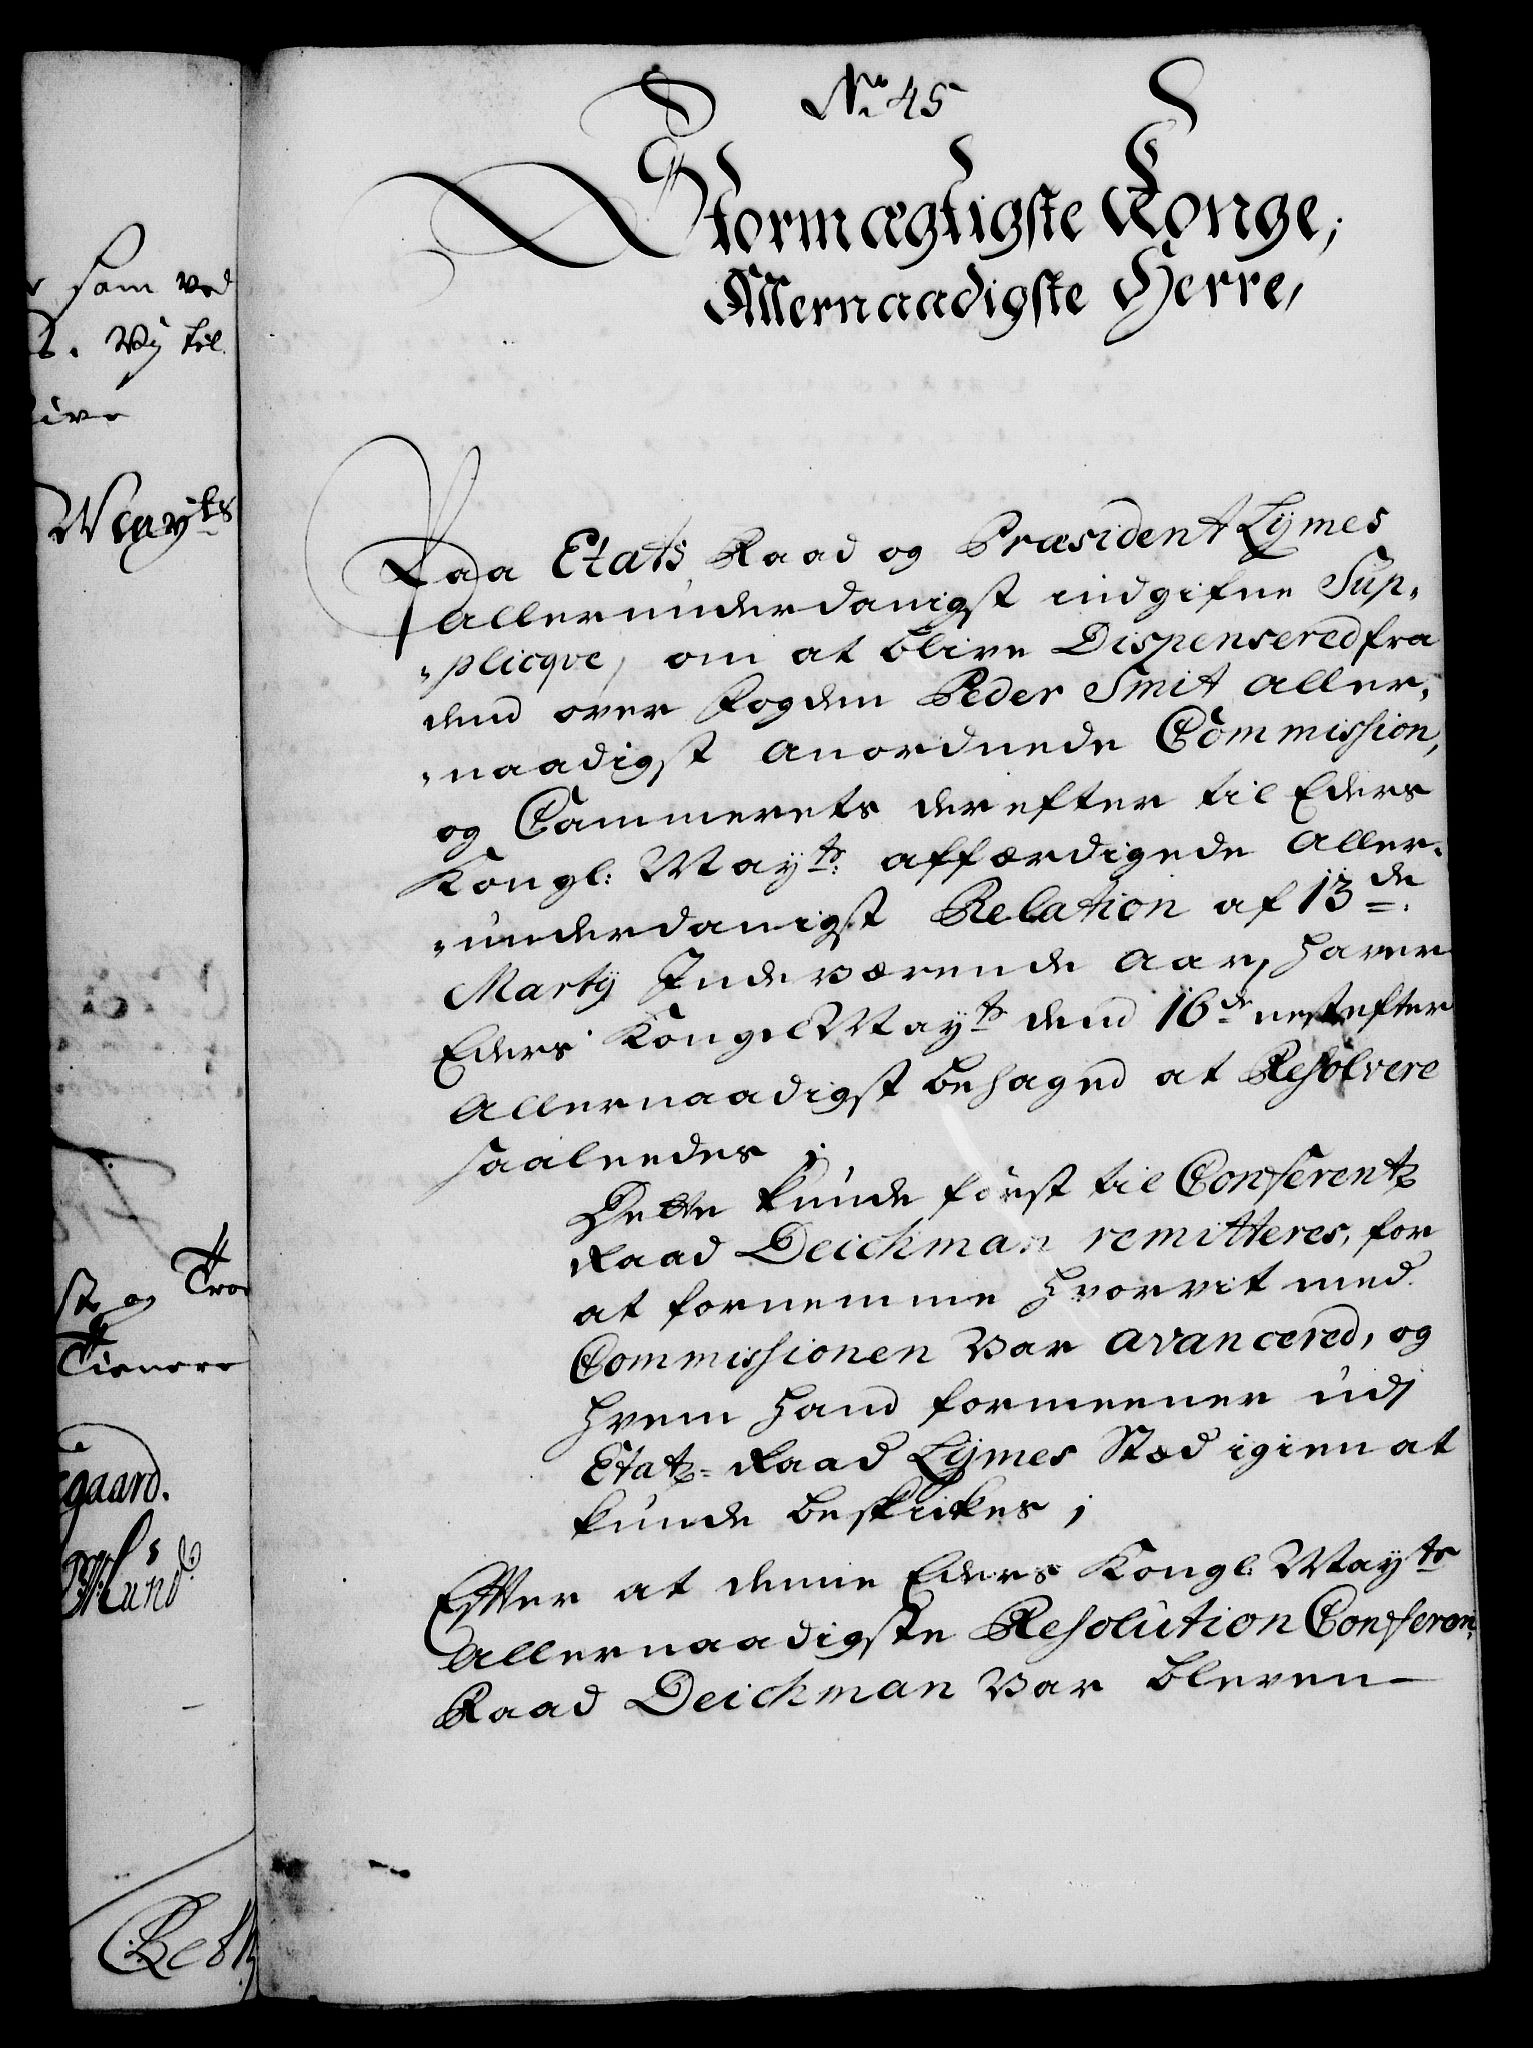 No 45
Stormægtigste Konge,
Allernaadigste Herre,
Paa Etats Raad og Præsident Lÿmes
allerunderdanigst indgifne Sup-
-plicqve, om at blive Dispensered fra
dend over fogden Peder Smit aller-
-naadigst anordnede Commission,
og Cammerets derefter til Eders
Kongl: Mayts: affærdigede aller-
-underdanigst Relation af 13de
Martÿ Indeværende aar, haver
Eders Kongel Mayts dend 16de nestefter
allernaadigst behaged at Resolvere
saaleedes;
Dette kunde først til Conferentz
Raad Deichman remitteres, for
at fornemme hvorvit med
Commissionen var avancered, og
hvem hand formeener udj
Etatz-Raad Lÿmes Stæd igien at
kunde beskikes;
Efter at denne Eders Kongl. Mayts
allernaadigste Resolution Conferen:
Raad Deichman var bleven
som ved
Vij til
Mayts
st og Troe
Tienere
gaard.
Mund.